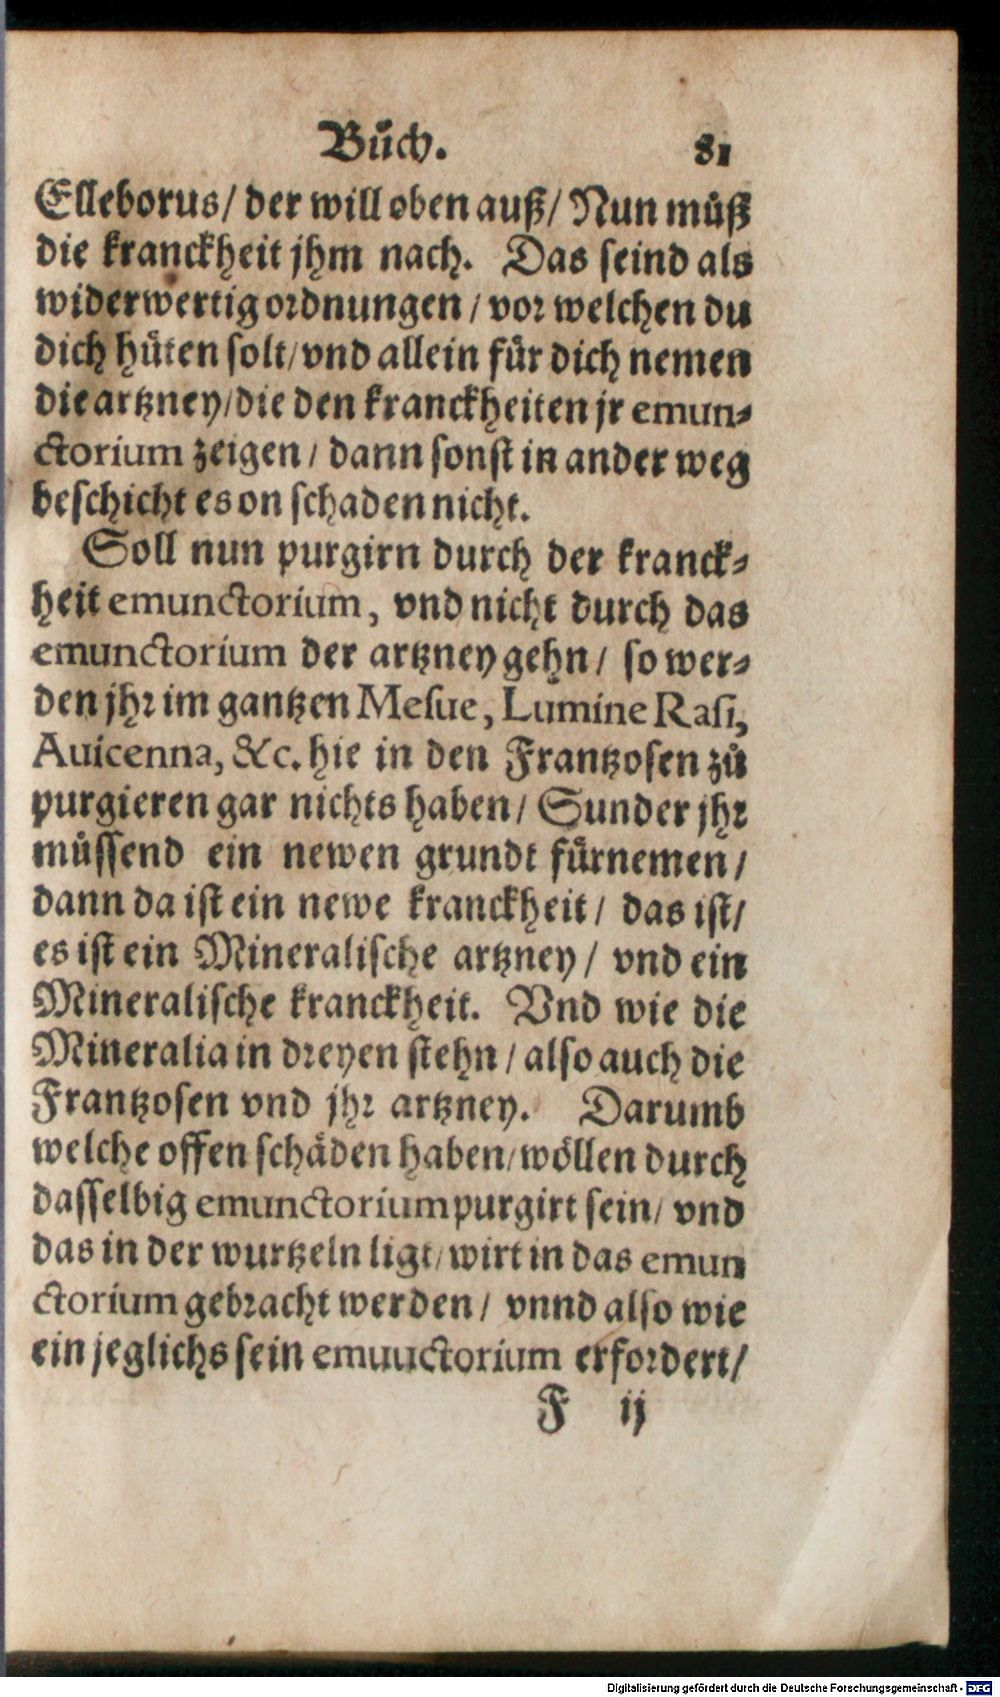 Buͦch. 81
Elleborus/ der will oben auß/ Nun muͦß
die kranckheit jhm nach. Das seind als
widerwertig ordnungen / vor welchen du
dich huͤten solt/ vnd allein fuͤr dich nemen
die artzney/ die den kranckheiten jr emun⸗
ctorium zeigen / dann sonst in ander weg
beschicht es on schaden nicht.
Soll nun purgirn durch der kranck⸗
heit emunctorium, vnd nicht durch das
emunctorium der artzney gehn / so wer⸗
den jhr im gantzen Mesue, Lumine Rasi,
Auicenna, &c. hie in den Frantzosen zuͦ
purgieren gar nichts haben / Sunder jhr
muͤssend ein newen grundt fuͤrnemen /
dann da ist ein newe kranckheit / das ist/
es ist ein Mineralische artzney / vnd ein
Mineralische kranckheit. Vnd wie die
Mineralia in dreyen stehn / also auch die
Frantzosen vnd jhr artzney. Darumb
welche offen schaͤden haben/ woͤllen durch
dasselbig emunctorium purgirt sein/ vnd
das in der wurtzeln ligt/ wirt in das emun
ctorium gebracht werden / vnnd also wie
ein jeglichs sein emuuctorium erfordert/
F ij
Digitalisierung gefördert durch die Deutsche Forschungsgemeinschaft - DFG